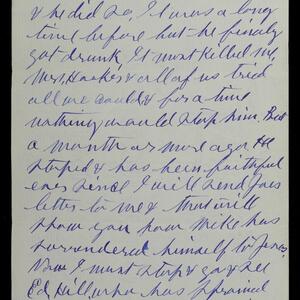 & he did so, It was a long
time before but he finaly
got drunk, It most killed me,
Mrs Hawkes & all of us tried
all we could & for a time
nothing would stop him. But
a month or more ago He
stoped & has been faithful
ever since I will send
letter to me & that will
show you how Mike has
surrendered himself to Jesus.
Now I must stop & go & see
Ed Hill who has